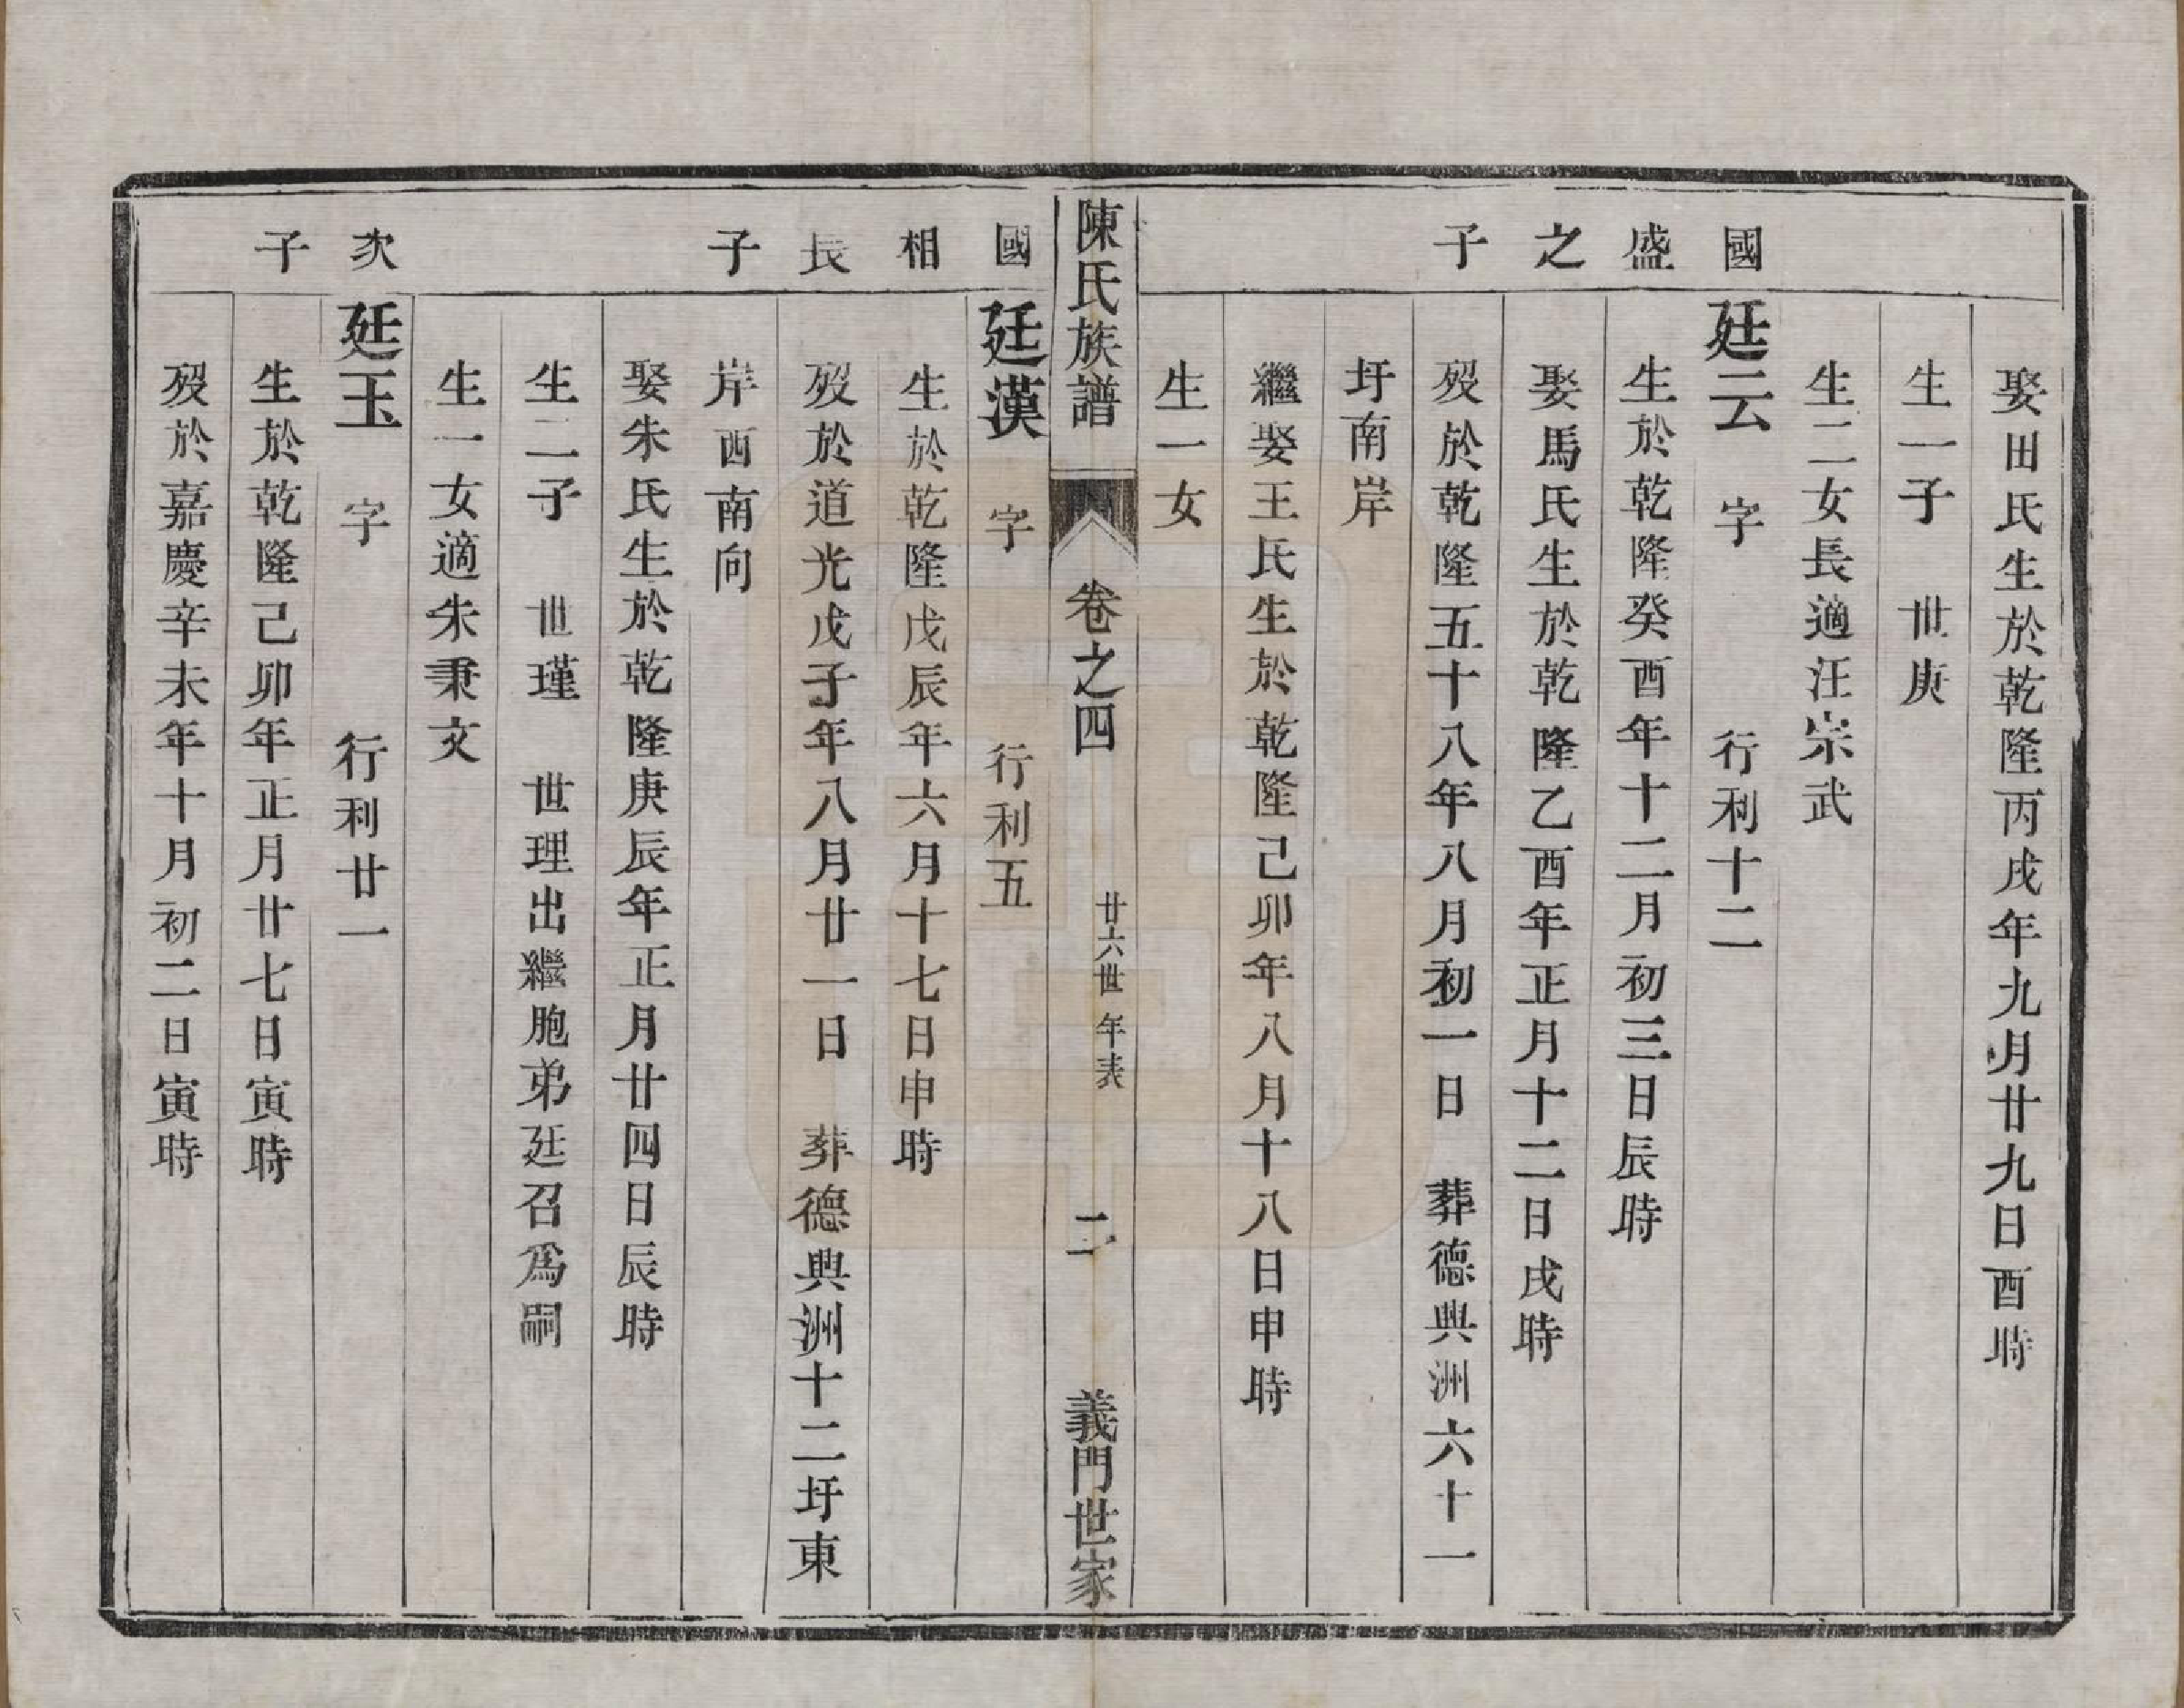 娶田氏生於乾隆丙戌年九月廿九日酉時
生一子　世庚
生二女長適汪宗武
國盛之子
廷云　字　行利十二
生於乾隆癸酉年十二月初三日辰時
娶馬氏生於乾隆乙酉年正月十二日戌時
歿於乾隆五十八年八月初一日　葬德興洲六十一
圩南岸
繼娶王氏生於乾隆己卯年八月十八日申時
生一女
陳氏族譜　卷之四　廿六世年表　二　義門世家
國相長子
廷漢　字　行利五
生於乾隆戊辰年六月十七日申時
歿於道光戊子年八月廿一日　葬德興洲十二圩東
岸西南向
娶朱氏生於乾隆庚辰年正月廿四日辰時
生二子　世瑾　世理出繼胞弟廷召爲嗣
生一女適朱秉文
次子
廷玉　字　行利廿一
生於乾隆己卯年正月廿七日寅時
歿於嘉慶辛未年十月初二日寅時